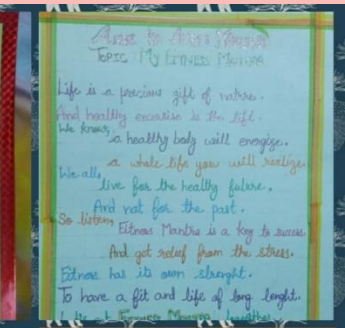 Topic My Fitness Mantra
Life is a precious gift of nature.
And healthy exercise is the
We know,
a healthy body will energize.
a whole life you will realize.
We all,
live for the healthy future.
And not for the past.
So listen,
Fitness Mantra is a key to success.
And get relief from the stress.
Fitness has its own strenght.
To have a fit and life of long lenght.
Fitness Mantra